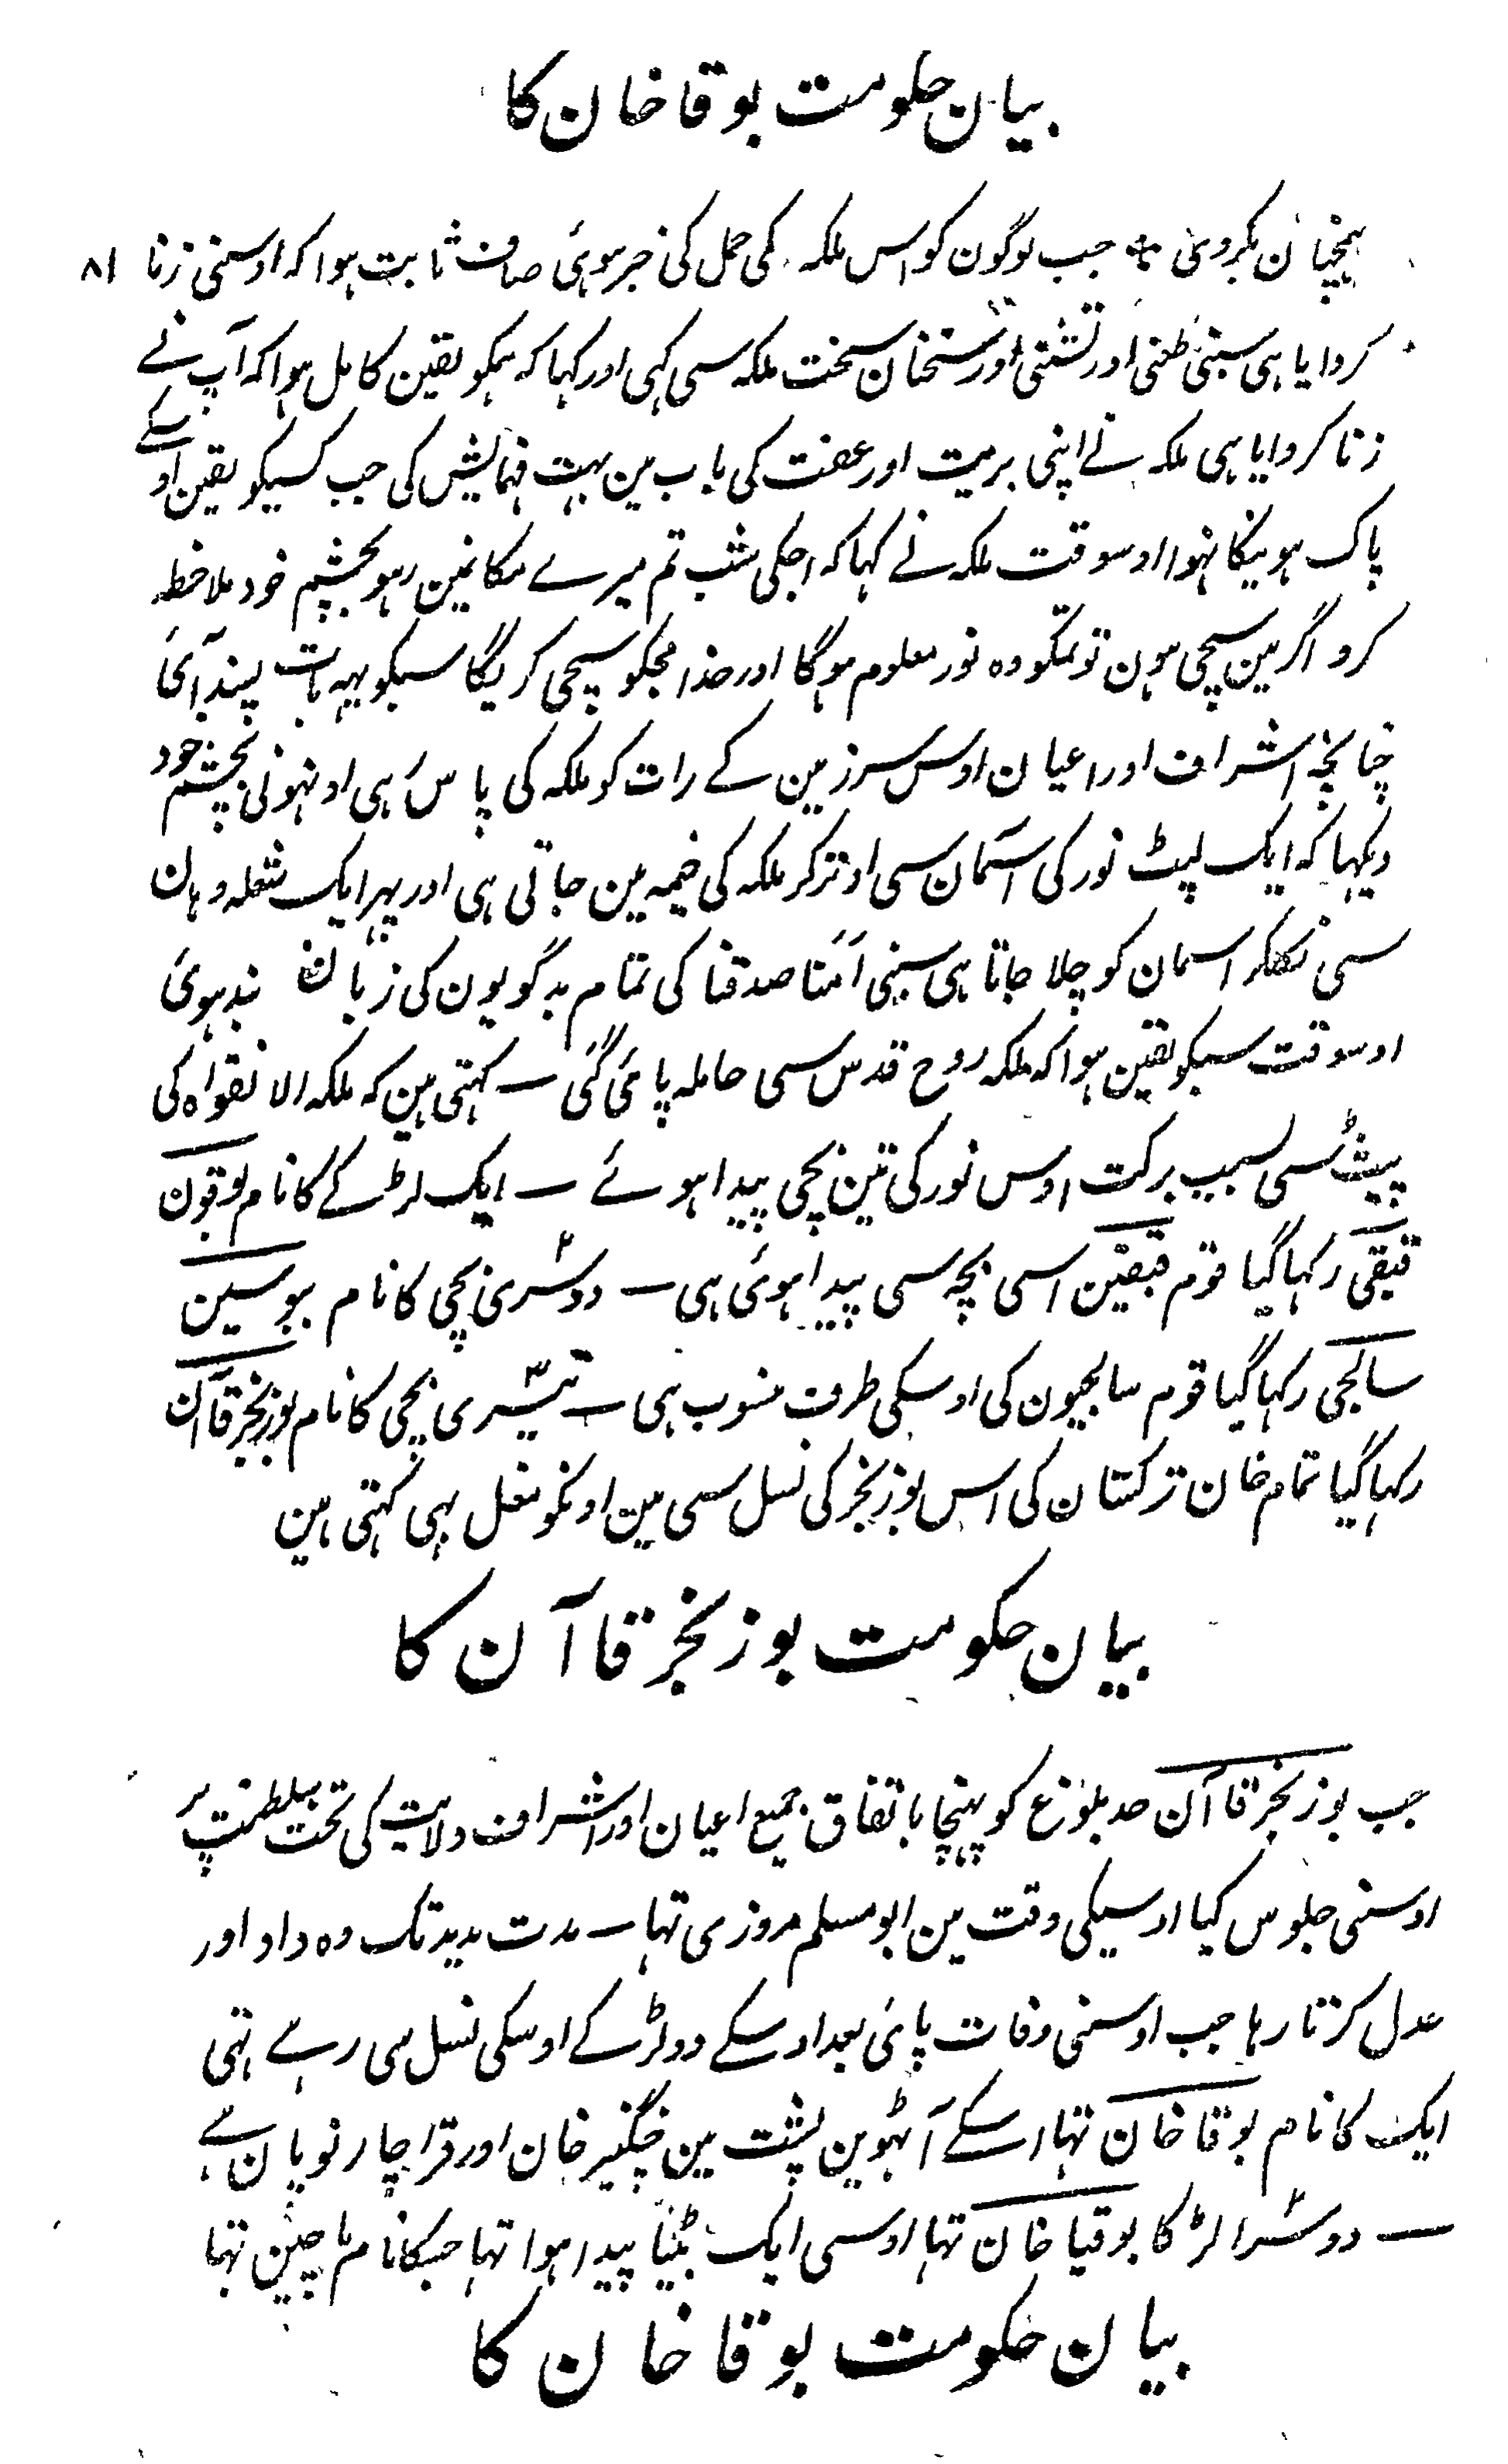 بیان حکومت بوقا خان کا
ہمچنان بکر دوی جب لوگون کو اس ملکہ کی حمل کی خبر ہوئی صاف ثابت ہوا کہ اوسنی زنا ۸۱
کروایا ہی سبنی طعنی اور تشنی اور سخنان سخت ملکہ سی کہی اور کہا کہ ہمکو یقین کامل ہوا کہ آپ نے
زنا کروایا ہی ملکہ نے اپنی بریت اور عفت کی باب مین بہت فہمایش کی جب کسیکو یقین اوسکے
پاک ہونیکا نہوا اوسوقت ملکہ نے کہا کہ اجکی شب تم میرے مکانمین رہو بچشم خود ملاحظہ
کرو اگر مین سچی ہون تو تمکو وہ نور معلوم ہوگا اور خدا مجکو سچی کریگا سبکو یہہ بات پسند آئی
چنانچہ اشراف اور اعیان اوس سرزمین کے رات کو ملکہ کی پاس رہی اونہونی بچشم خود
دیکہا کہ ایک لپٹ نور کی آسمان سی اوترکر ملکہ کی خیمہ مین جاتی ہی اور پہر ایک شعلہ وہان
سی نکلکر اسمان کو چلا جاتا ہی سبنی اٰمنا صدقنا کی تمام بدگویون کی زبان بند ہوئی
اوسوقت سبکو یقین ہوا کہ ملکہ روح قدس سی حاملہ پائی گئی ــ کہتی ہین کہ ملکہ الانقواہ کی
پیٹ سی بسبب برکت اوس نور کی تین بچی پیدا ہوئے ــ ایک لڑکے کا نام بوقون
قیقی رکہا گیا قوم قیقین اسی بچہ سی پیدا ہوئی ہی ــ دوسری بچی کا نام بوسین
سالجی رکہا گیا قوم سالجیون کی اوسکی طرف منسوب ہی ــ تیسری بچی کا نام بوزنجر قاآن
رکہا گیا تمام خان ترکستان کی اس بوزنجر کی نسل سی ہین اونکو مغل بہی کہتی ہین
بیان حکومت بوزنجر قاآن کا
جب بوزنجر قاآن حد بلوغ کو پہنچا باتفاق جمیع اعیان اور اشراف ولایت کی تخت سلطنت پر
اوسنی جلوس کیا اوسیکی وقت مین ابو مسلم مروزی تہا ــ مدت مدید تک وہ داد اور
عدل کرتا رہا جب اوسنی وفات پائی بعد اوسکے دو لڑکے اوسکی نسل سی رہے تہی
ایک کا نام بوقا خان تہا اسکے آٹہوین پشت مین چنگیز خان اور قراچار نویان ہے
ــ دوسرا لڑکا بوقیا خان تہا اوسی ایک بیٹیا پیدا ہوا تہا جسکا نام ماچین تہا
بیان حکومت بوقا خان کا